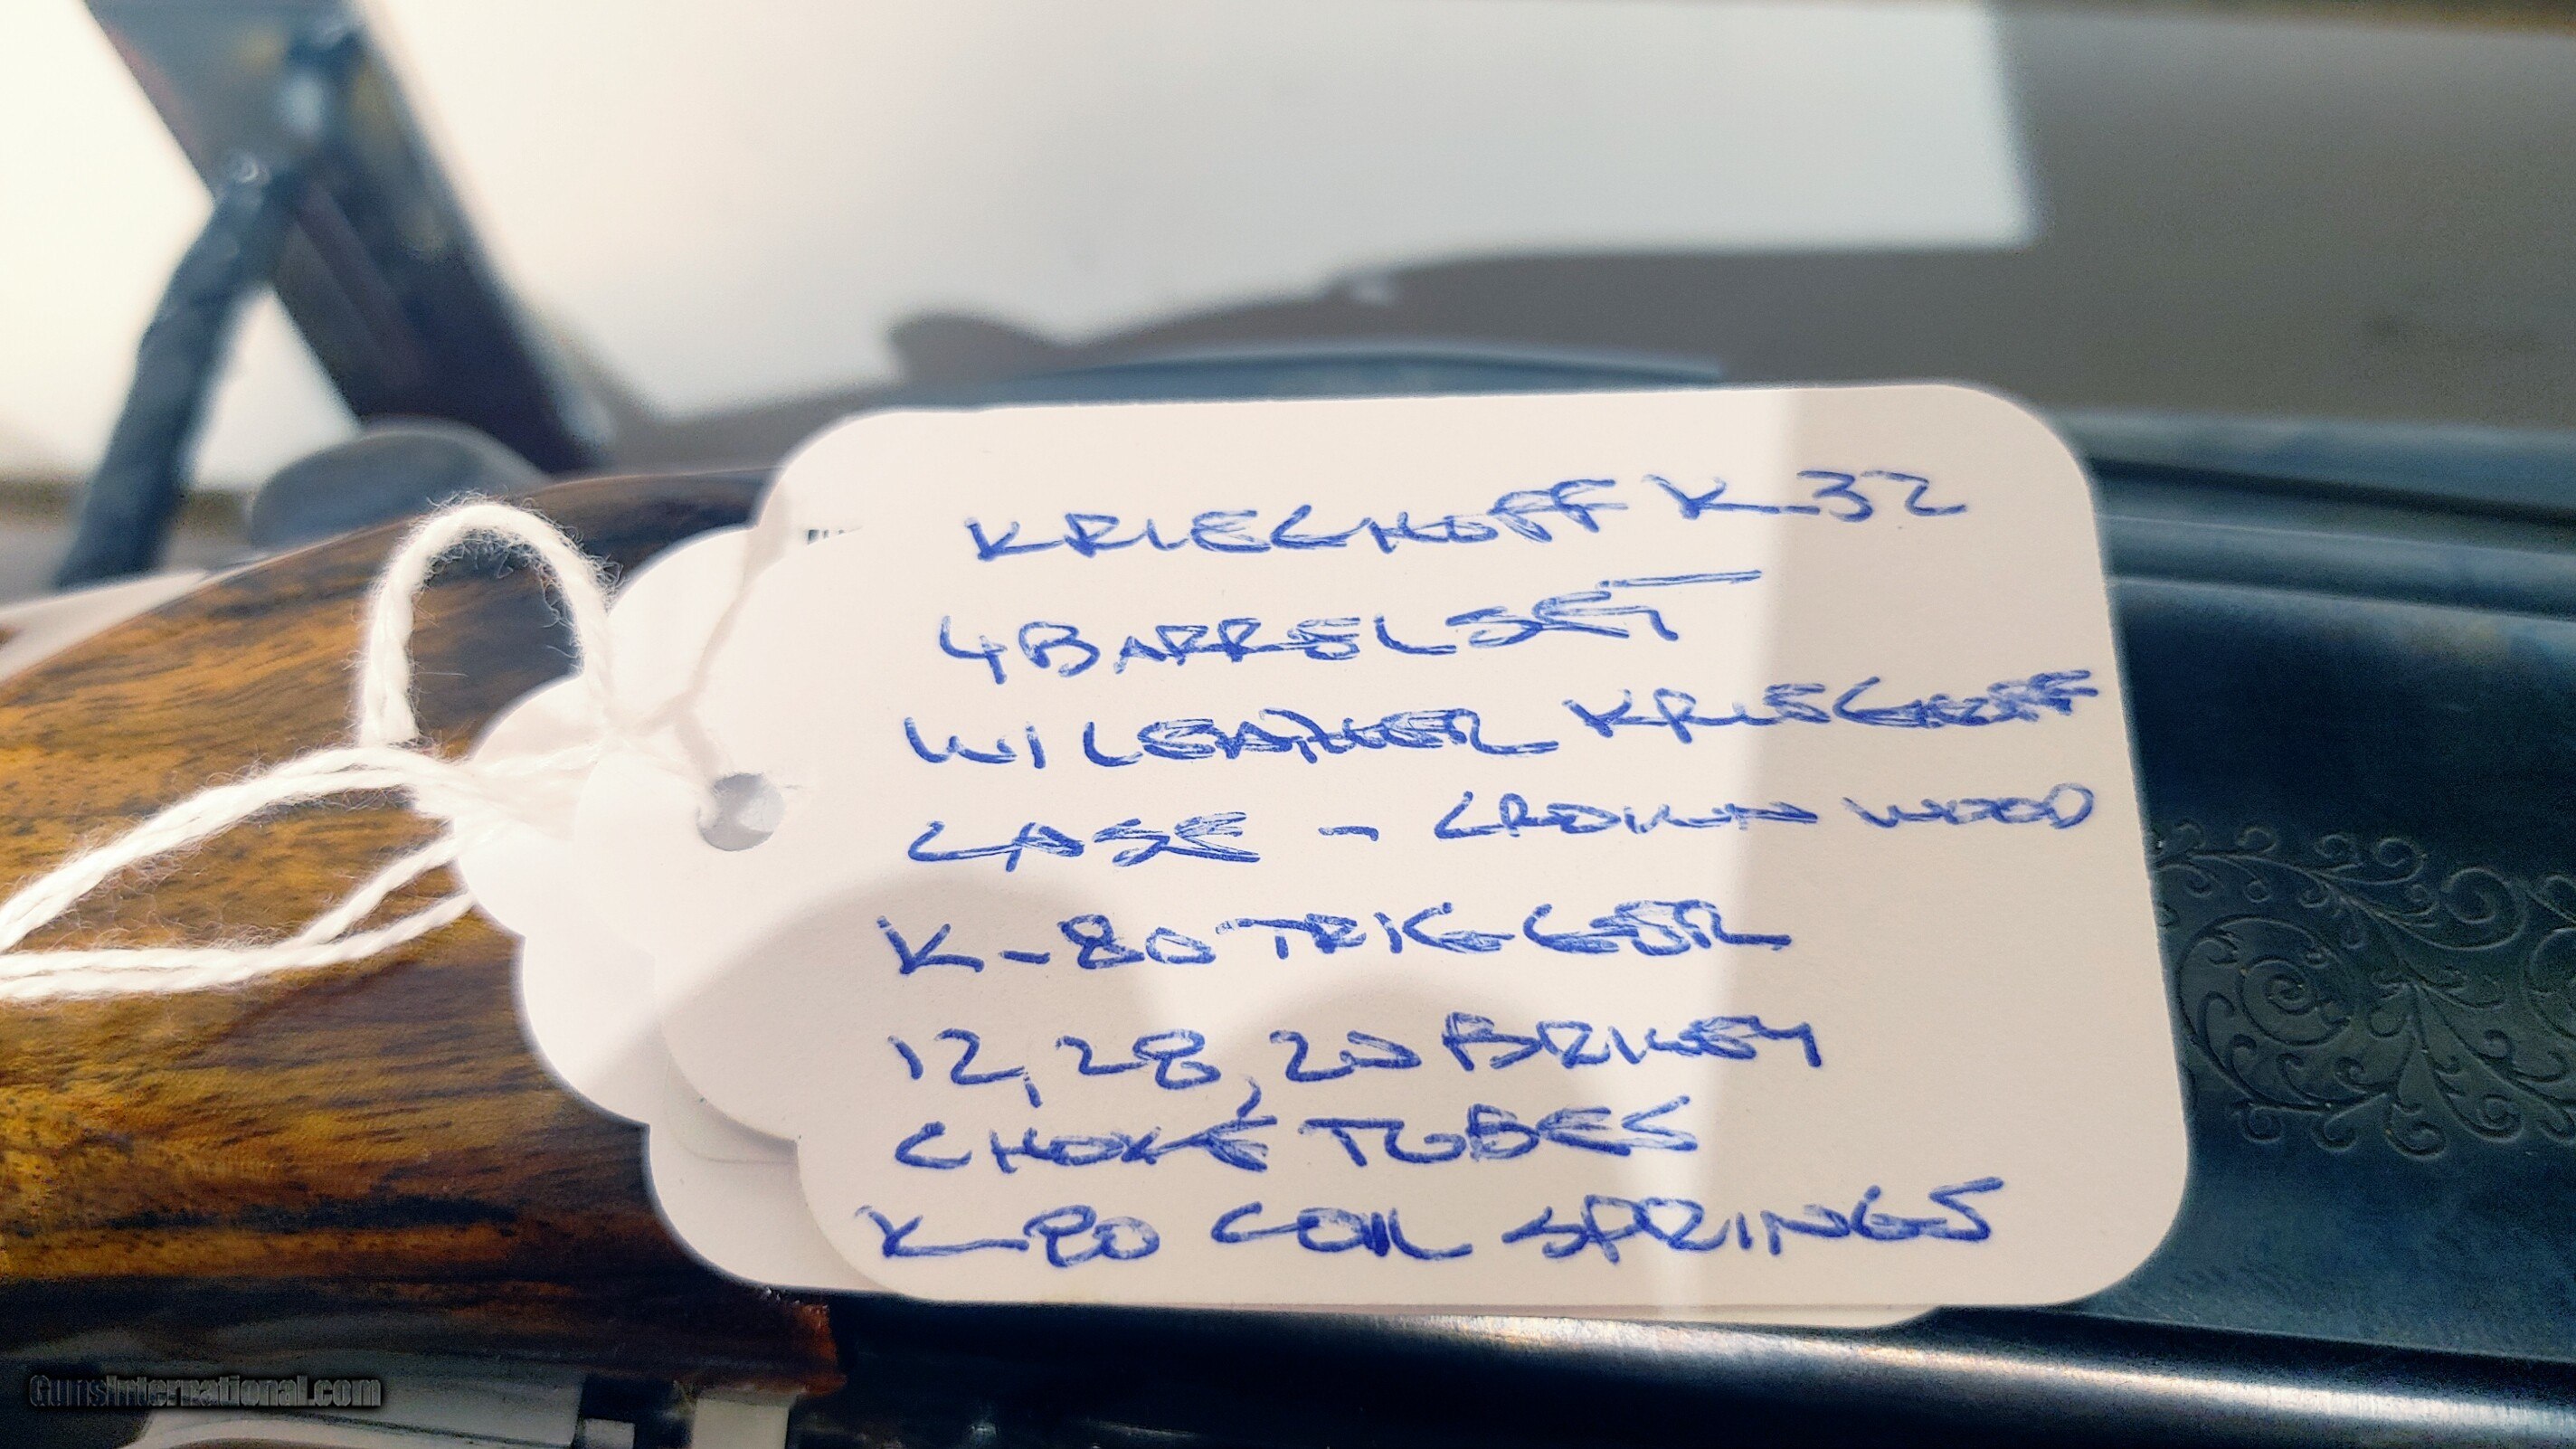 KRIEGHOFF K-32
4 BARREL SET
W/ LEATHER KRIEGHOFF
CASE - CROWN WOOD
K-80 TRIGGER
12, 28, 20 BRILEY
CHOKE TUBES
K-80 COIL SPRINGS
GunsInternational.com